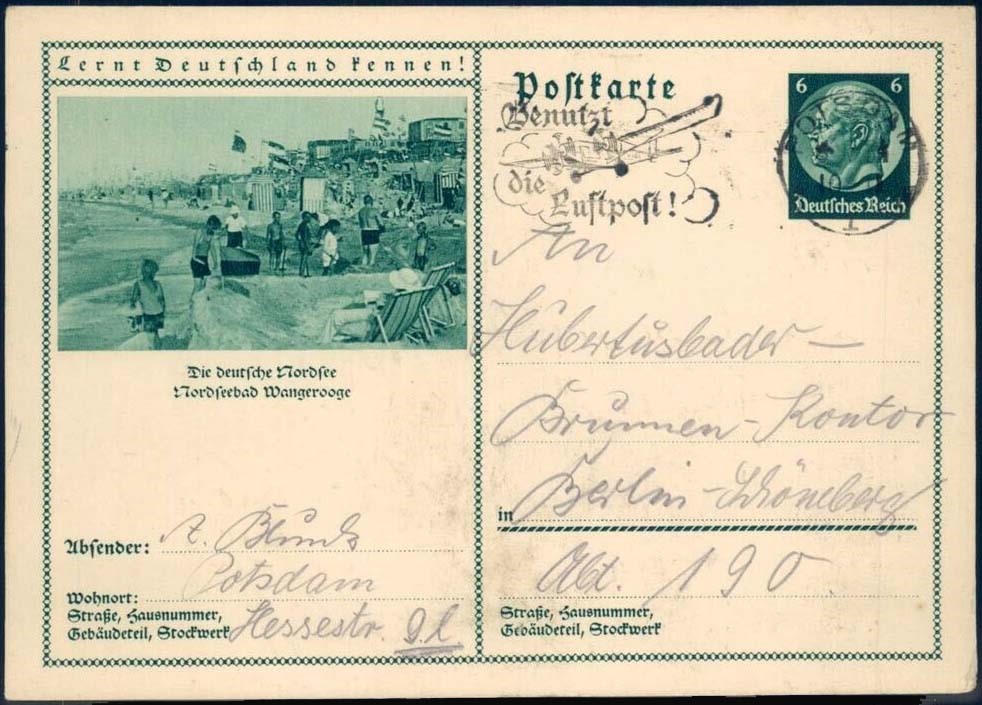 Lernt Deutschland kennen!
Die deutsche Nordsee
Nordseebad Wangerooge
Absender: A.
Potsdam
Wohnort:
Straße, Hausnummer,
Gebäudeteil, Stockwerk Hessestr.
Postkarte
Benutzt
die
Luftpost!
6 6
Deutsches Reich
POTSDAM
1
An
Hubertusbader-
Brunnen-Kontor
in Berlin-Schöneberg
Abt. 190
Straße, Hausnummer,
Gebäudeteil, Stockwerk